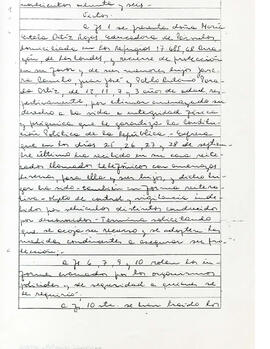 novecientos ochenta y seis.-
Vistos:
A fs. 1 se presenta doña María
Estela Ortiz Rojas educadora de párvulos
domiciliada en Los Refugios 17.685, Lo Barn
de Las Condes, y recurre de protección
en su favor y de sus menores hijos Jose
Javiera, Juan José, y Pablo Antonio Para-
da Ortiz, de 12, 11, 7 y 3 años de edad res-
pectivamente, por estimar amenazado su
derecho a la vida e integridad física
y psíquica que le garantiza la Consti-
tución Política de la República.- Expresa
que en los días 25, 26, 27 y 28 de septiem-
bre último ha recibido en su casa reite-
rados llamados telefónicos con amenaza
de muerte, para ella y sus hijos, y dicho lugar
ha sido también en forma reitera-
tiva objeto de control, vigilancia inde-
bidos por vehículos de distintos conducidos
por desconocidos.- Termina solicitando
que se acoja su recurso y se adopten las
medidas conducentes a asegurar su pro-
tección;
A fs. 6, 7, 8, 9, 10 rolan los in-
formes evacuados por los organismos
policiales y de seguridad a quienes se
les requirió.
A fs. 10 vta. se han traído los